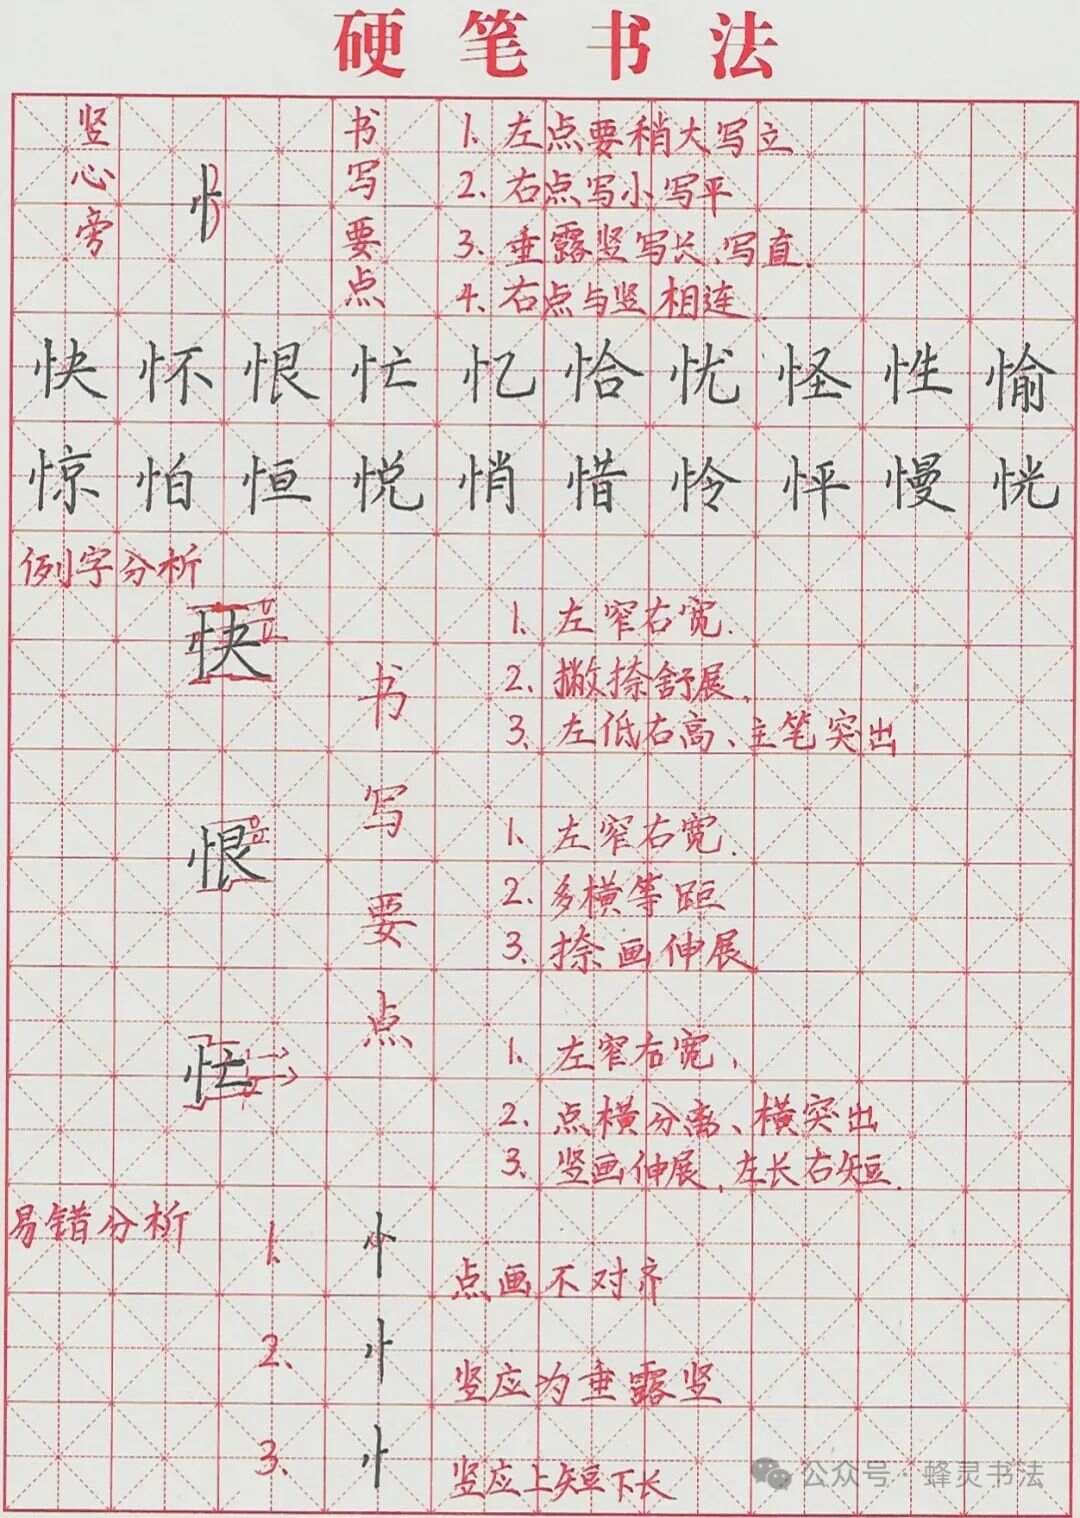 硬笔书法
竖心旁
忄
书写要点
1. 左点要稍大写立
2. 右点写小写平
3. 垂露竖写长、写直.
4. 右点与竖相连
快怀恨忙忆恰忧怪性愉
惊怕恒悦悄惜怜怦慢恍
例字分析
书写要点
快
1. 左窄右宽.
2. 撇捺舒展、
3. 左低右高、主笔突出
恨
1. 左窄右宽.
2. 多横等距
3. 捺画伸展
忙
1. 左窄右宽,
2. 点横分离、横突出
3. 竖画伸展,左长右短.
易错分析
1. 忄 点画不对齐
2. 忄 竖应为垂露竖
3. 忄 竖应上短下长
公众号·蜂灵书法